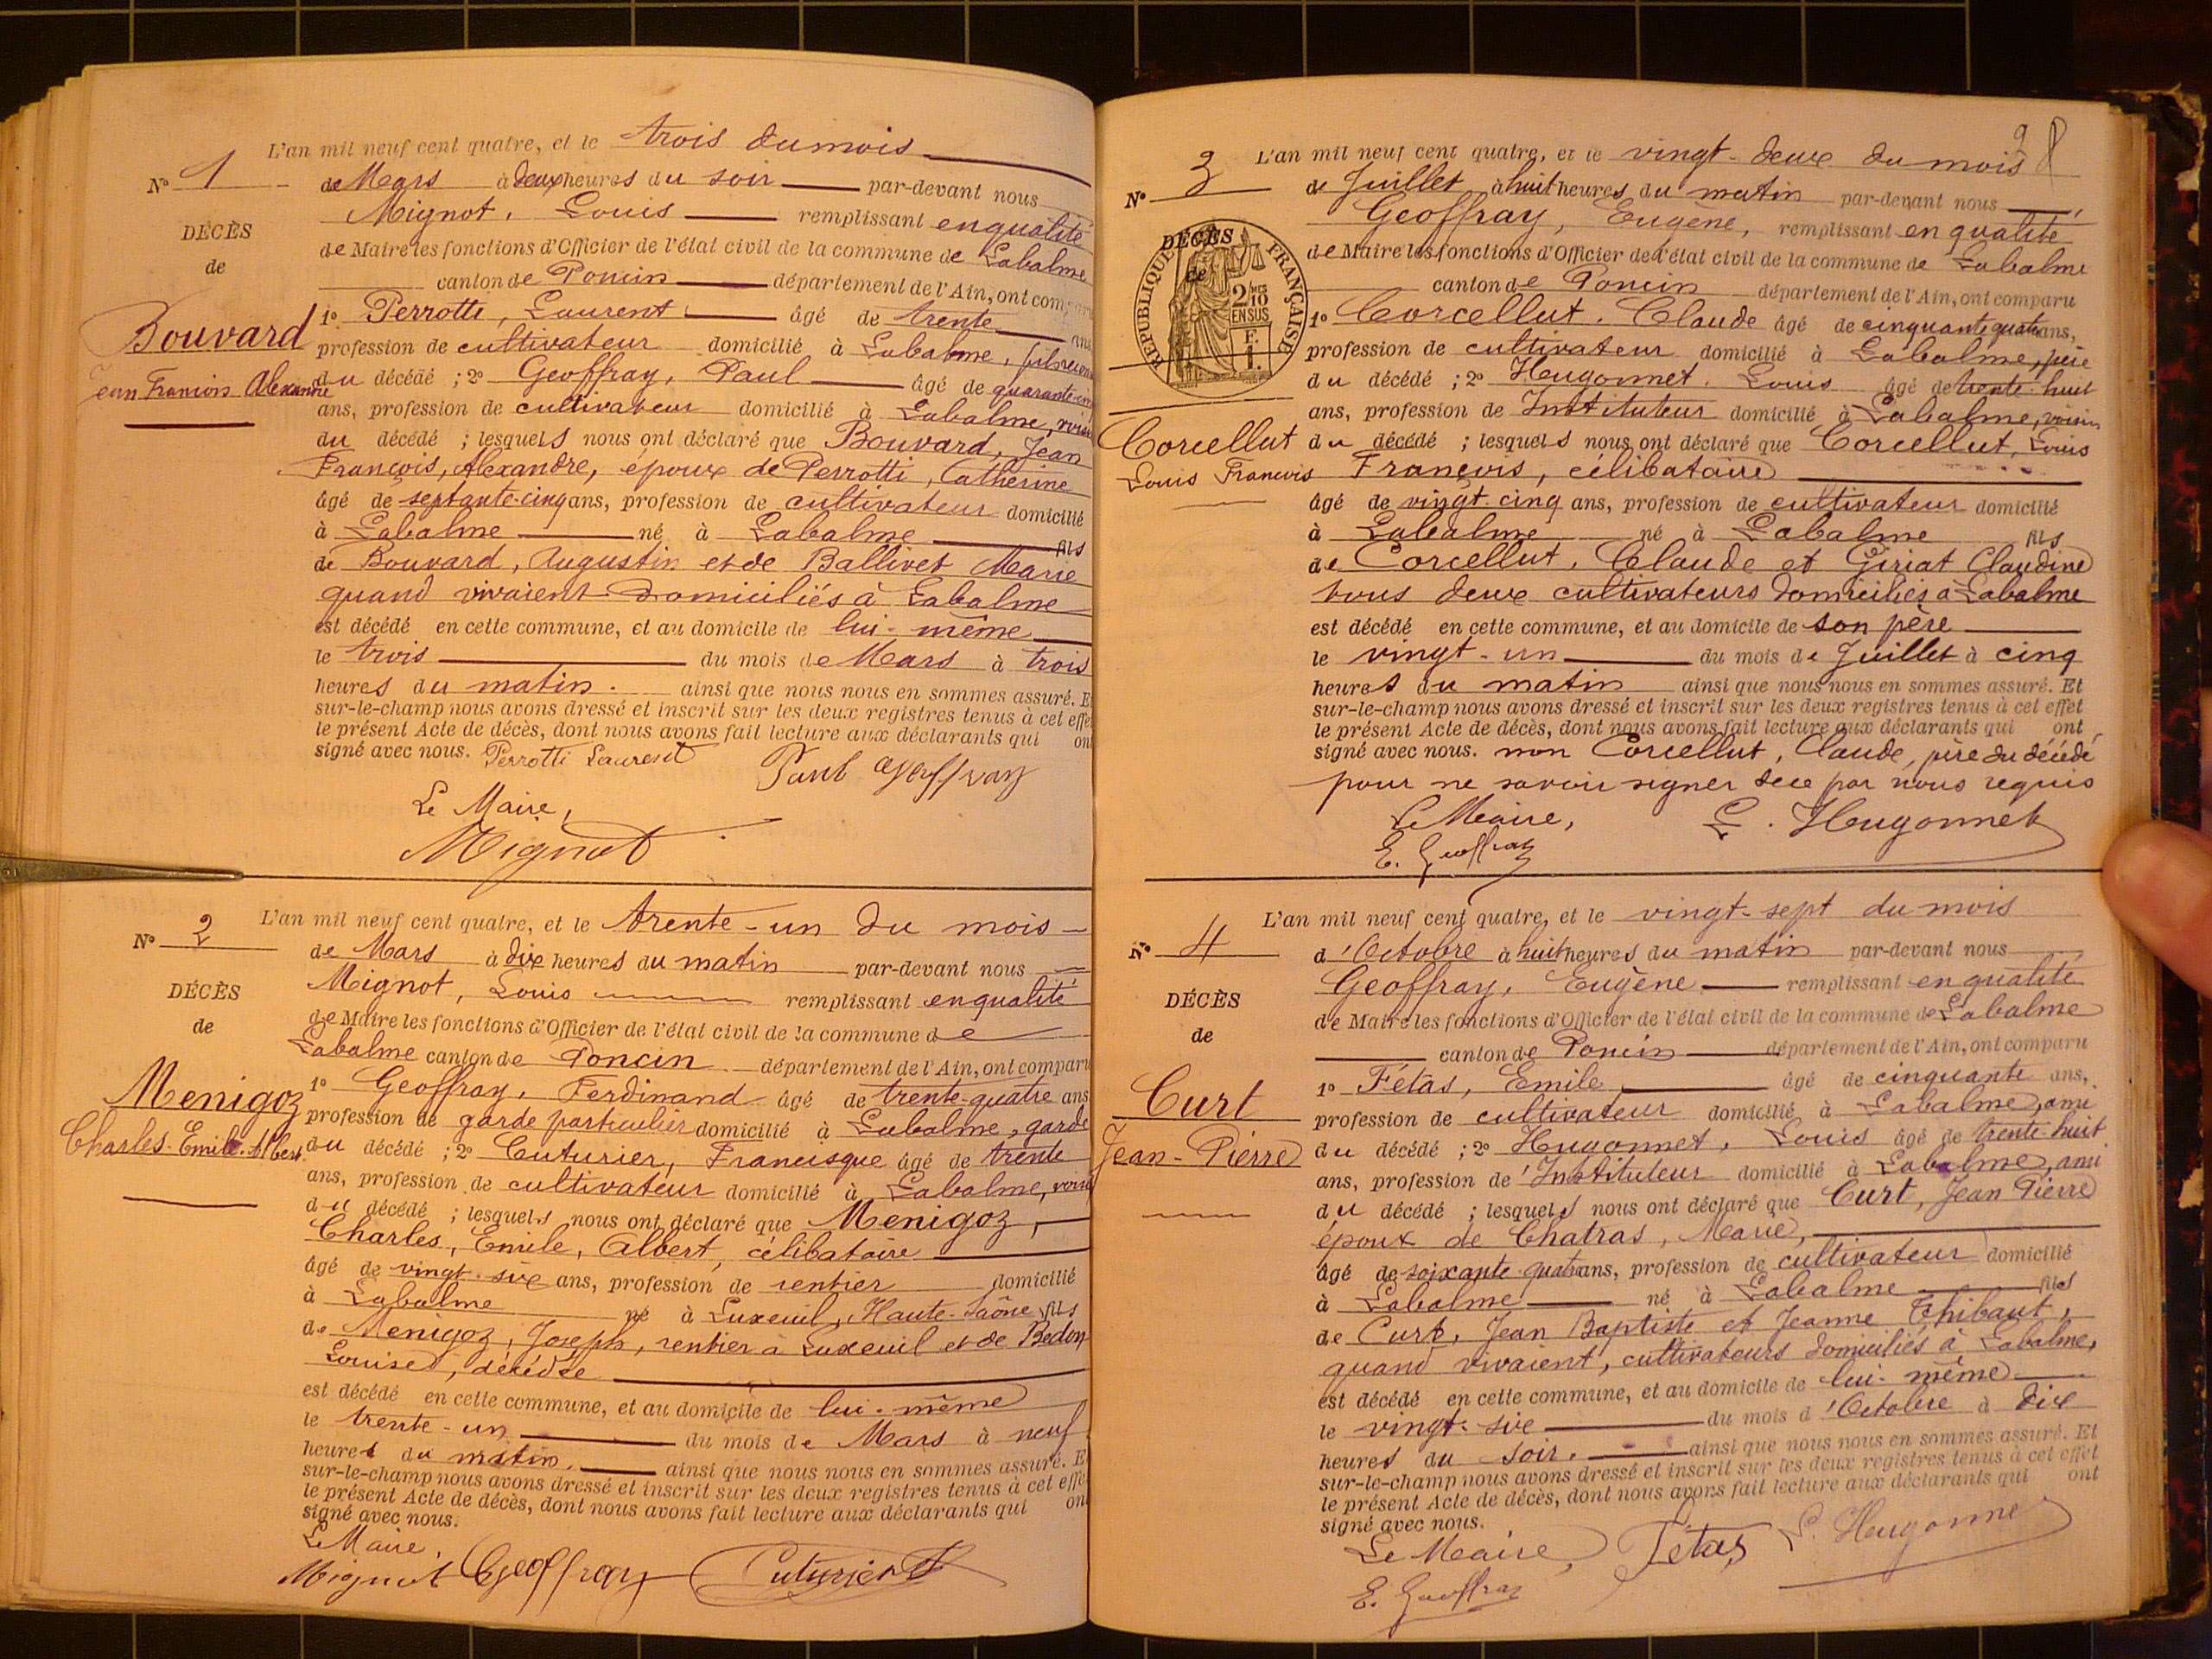 L'an mil neuf cent quatre, et le trois du mois
N° 1
de Mars à deux heures du soir par-devant nous
Mignot, Louis remplissant en qualité
DÉCÈS
de Maire les fonctions d'Officier de l'état civil de la commune de Labalme
de
canton de Poncin département de l'Ain, ont comparu
Bouvard
Jean François Alexandre
1° Perrotte, Laurent âgé de trente ans
profession de cultivateur domicilié à Labalme,
du décédé ; 2° Geoffray, Paul âgé de
ans, profession de cultivateur domicilié à Labalme, voisin
du décédé ; lesquels nous ont déclaré que Bouvard, Jean
François, Alexandre, époux de Perrotti, Catherine
âgé de septante-cinq ans, profession de cultivateur domicilié
à Labalme né à Labalme fils
de Bouvard, Augustin et de Ballivet Marie
quand vivaient domiciliés à Labalme
est décédé en cette commune, et au domicile de lui-même
le trois du mois de Mars à trois
heures du matin. ainsi que nous nous en sommes assuré. Et
sur-le-champ nous avons dressé et inscrit sur les deux registres tenus à cet effe
le présent Acte de décès, dont nous avons fait lecture aux déclarants qui ont
signé avec nous. Perrotti Laurent Paul Geoffray
Le Maire,
Mignot
L'an mil neuf cent quatre, et le trente-un du mois
N° 2
de Mars à dix heures du matin par-devant nous
Mignot, Louis remplissant en qualité
DÉCÈS
de Maire les fonctions d'Officier de l'état civil de la commune de
de
Labalme canton de Poncin département de l'Ain, ont comparu
Menigoz
Charles-Emile-Albert
1° Geoffray, Ferdinand âgé de trente-quatre ans
profession de garde particulier domicilié à Labalme, garde
du décédé ; 2° Cuturier, Francisque âgé de trente
ans, profession de cultivateur domicilié à Labalme, voisin
du décédé ; lesquels nous ont déclaré que Menigoz,
Charles, Emile, Albert, célibataire
âgé de vingt-six ans, profession de rentier domicilié
à Labalme né à Luxeuil, Haute-Saône fils
de Menigoz, Joseph, rentier à Luxeuil et de Bedon
Louise, décédée
est décédé en cette commune, et au domicile de lui-même
le trente-un du mois de Mars à neuf
heures du matin. ainsi que nous nous en sommes assuré. E
sur-le-champ nous avons dressé et inscrit sur les deux registres tenus à cet effe
le présent Acte de décès, dont nous avons fait lecture aux déclarants qui ont
signé avec nous.
Le Maire,
Mignot Geoffray Cuturier
9 8
L'an mil neuf cent quatre, et le vingt-deux du mois
N° 3
de Juillet à huit heures du matin par-devant nous
Geoffray, Eugène, remplissant en qualité
DÉCÈS
de
RÉPUBLIQUE FRANÇAISE
2/10 EN SUS
de Maire les fonctions d'Officier de l'état civil de la commune de Labalme
canton de Poncin département de l'Ain, ont comparu
1° Corcellut, Claude âgé de cinquante quatre ans,
profession de cultivateur domicilié à Labalme, père
du décédé ; 2° Hugonnet, Louis âgé de trente-huit
ans, profession de Instituteur domicilié à Labalme, voisin
Corcellut
Louis François
du décédé ; lesquels nous ont déclaré que Corcellut, Louis
François, célibataire
âgé de vingt-cinq ans, profession de cultivateur domicilié
à Labalme né à Labalme fils
de Corcellut, Claude et Giriat Claudine
tous deux cultivateurs domiciliés à Labalme
est décédé en cette commune, et au domicile de son père
le vingt-un du mois de Juillet à cinq
heures du matin ainsi que nous nous en sommes assuré. Et
sur-le-champ nous avons dressé et inscrit sur les deux registres tenus à cet effet
le présent Acte de décès, dont nous avons fait lecture aux déclarants qui ont
signé avec nous. non Corcellut, Claude, père du décédé
pour ne savoir signer de ce par nous requis
Le Maire, L. Hugonnet
E. Geoffray
L'an mil neuf cent quatre, et le vingt-sept du mois
N° 4
d'Octobre à huit heures du matin par-devant nous
Geoffray, Eugène remplissant en qualité
DÉCÈS
de Maire les fonctions d'Officier de l'état civil de la commune de Labalme
de
canton de Poncin département de l'Ain, ont comparu
Curt
Jean-Pierre
1° Fétas, Emile âgé de cinquante ans,
profession de cultivateur domicilié à Labalme, ami
du décédé ; 2° Hugonnet, Louis âgé de trente-huit
ans, profession de Instituteur domicilié à Labalme, ami
du décédé ; lesquels nous ont déclaré que Curt, Jean Pierre
époux de Chatras, Marie,
âgé de soixante-quatre ans, profession de cultivateur domicilié
à Labalme né à Labalme fils
de Curt, Jean Baptiste et Jeanne Thibaut,
quand vivaient, cultivateurs domiciliés à Labalme,
est décédé en cette commune, et au domicile de lui-même
le vingt-six du mois d'Octobre à dix
heures du soir. ainsi que nous nous en sommes assuré. Et
sur-le-champ nous avons dressé et inscrit sur les deux registres tenus à cet effet
le présent Acte de décès, dont nous avons fait lecture aux déclarants qui ont
signé avec nous.
Le Maire, Fétas L. Hugonnet
E. Geoffray